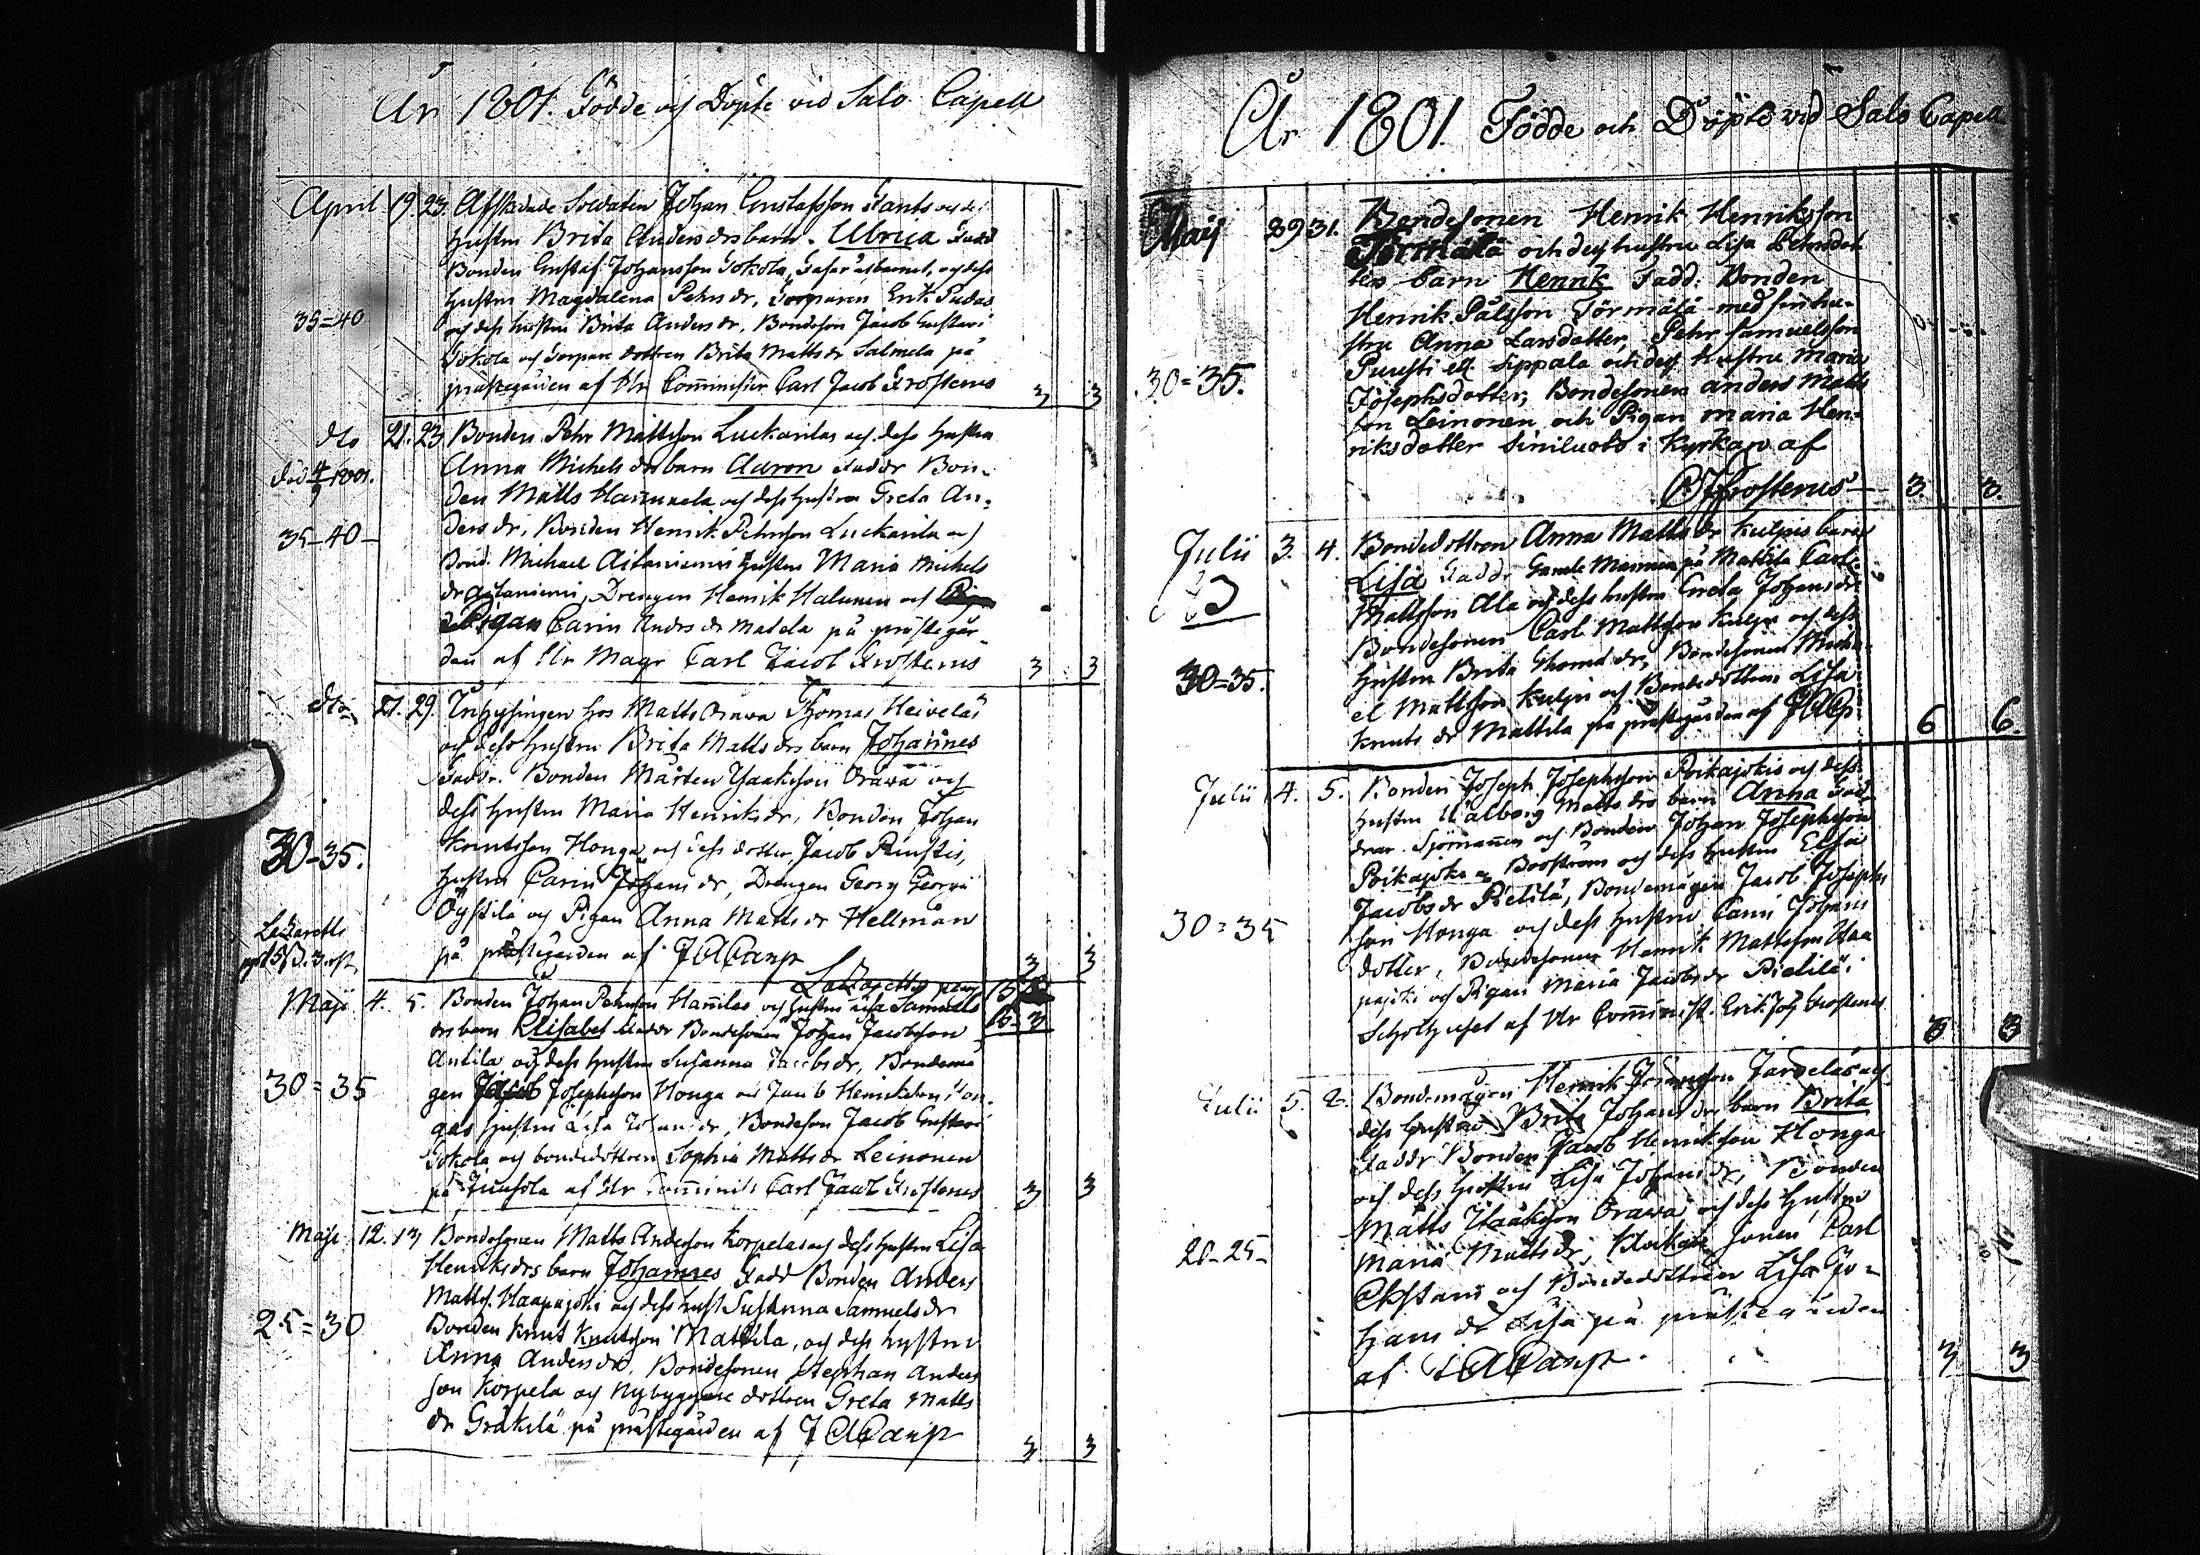 År 1801. Födde och Döpte vid Salo Capell
April 19. 23. Afskedade Soldaten Johan Gustafsson Fants och des
hustru Brita Anders drs barn. Ulrica Fadd
Bonden Gustaf Johansson Jokela,
hustru Magdalena Pehrs dr, Erik Pudas
35=40 och dess hustru Brita Anders dr, Bondeson Jacob Gustavs
Jokela och dottren Brita Matts dr Salmela på
prästegården af Hr Comminister Carl Jacob Frosterus 3 3
dto 21. 23 Bonden Pehr Mattsson Luckarilas och dess hustru
Anna Michels drs barn Aaron Faddr Bon-
död 4/9 1801. den Matts Hannukela och dess hustru Greta An-
35-40- ders dr, Bonden Henrik Pehrsson Luckarila och
Bond. Michael Aitaniemis hustru Maria Michels
dr Aitaniemi, Drengen Henrik Halunen och
Pigan Carin Anders dr Matela på prästegår-
den af Hr Magr Carl Jacob Frosterus 3 3
dto 27. 29. Inhysingen hos Matts Orawa Thomas Heiveläs
och dess hustru Brita Matts drs barn Johannes
Faddr. Bonden Mårten Ysaaksson Orawa och
dess hustru Maria Henriks dr, Bonden Johan
30-35. Knutsson Honga och dess dotter, Jacob Ruustis
hustru Carin Johans dr, Drengen Georg Georgi
Öystilä och Pigan Anna Matts dr Hellman
Lazaretts
på prästegården af J A Camp 3 3
Lazaretts peng
Maji 4. 5. Bonden Johan Pehrsson Hannilas och hustru Lisa Samuels
drs barn Elisabet Faddr Bondesonen Johan Jacobsson
Antila och dess hustru Susanna Jacobs dr, Bondemå-
30=35 gen Jacob Josephsson Honga och Jacob Henriksson Hon-
gas hustru Lisa Johans dr, Bondeson Jacob Gustavs
Jokela och bondedottren Sophia Matts dr Leinonen
på Juusola af Hr Comminist. Carl Jacob Frosterus 3 3
Maji 12. 13 Bondesonen Matts Andersson Korpelas och dess hustru Lisa
Henriks drs barn Johannes Fadd Bonden Anders
Mattss. Haapajoki och dess hust Susanna Samuels dr
25=30 Bonden Knut Knutsson Mattila, och dess hustru
Anna Anders dr, Bondesonen Stephan Anders
son Korpela och Nybyggare dottren Greta Matts
dr Gräkilä på prästegården af J A Camp 3 3
År 1801. Födde och Döpte vid Salo Capell
Maij 29 31. Bondesonen Henrik Henriksson
Törmälä och dess hustru Lisa Pehrsdot
ters barn Henrik Fadd: Bonden
Henrik Pålsson Törmälä med sin hu-
stru Anna Larsdotter, Pehr Samuelsson
30=35. Puusti ell. Sippala och dess hustru Maria
Josephsdotter, Bondesonen anders Matts
son Leinonen och Pigan maria Hen-
riksdotter Siniluoto i Kyrkan af
Frosterus 3. 3.
Julii 3. 4. Bondedottren Anna Matts dr Kulpis barn
Lisa Faddr Gamle Mannen på Mattila Carl
Mattsson Ala och dess hustru Greta Johans dr
Bondesonen Carl Mattsson Kulpi och dess
30=35. hustru Brita Thomæ dr, Bondesonen Micha-
el Mattsson Kulpi och Bondedottren Lisa
Knuts dr Mattila på prästegården af J A Camp 6 6.
Julii 4. 5. Bonden Joseph Josephsson Poikajokis och dess
hustru Walborg Matts drs barn Anna Fad-
drar. Sjömannen och Bonden Johan Josephsson
Poikajoki a Boström och dess hustru Elsa
Jacobs dr Pietilä, Bondemågen Jacob Josephs
30=35 son Honga och dess hustru Carin Johans
dotter, Bondesonen Henrik Mattsson Haa
pajoki och Pigan Maria Jacobs dr Pietilä i
Sockhuset af Hr Comminist. Erik Joh Frosterus 3 3
Julii 5. Bondemågen Henrik Johansson Järveläs och
dess hustru Brita Johans drs barn Brita
Faddr Bonden Jacob Henriksson Honga
och dess hustru Lisa Johans dr, Bonden
Matts Ysaaksson Orawa och dess hustru
20-25- Maria Matts dr, Klockare sonen Carl
Ekstam och Bondedottren Lisa Jo-
hans dr på prästegården
af J A Camp 3 3